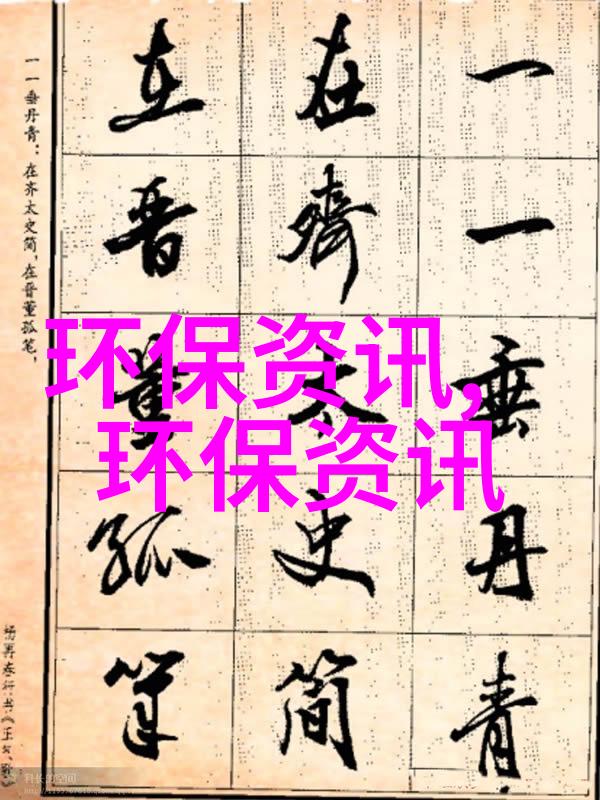 一一垂丹青
在齐太史简
在晋董狐笔
一一垂丹青：在齐太史简，在晋董狐笔，
环保资讯，
环保资讯
科长的空间